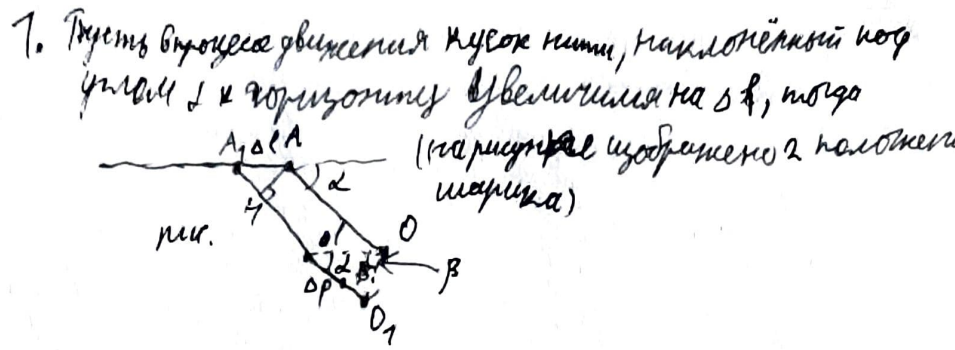 1. Пусть в процессе движения кусок нити, наклонённый под
углом α к горизонту увеличился на Δl, тогда
A₁ Δl A
(на рисунке изображено 2 положен
α
шарика)
т.к.
Δl
α
O
β
Δl
O₁